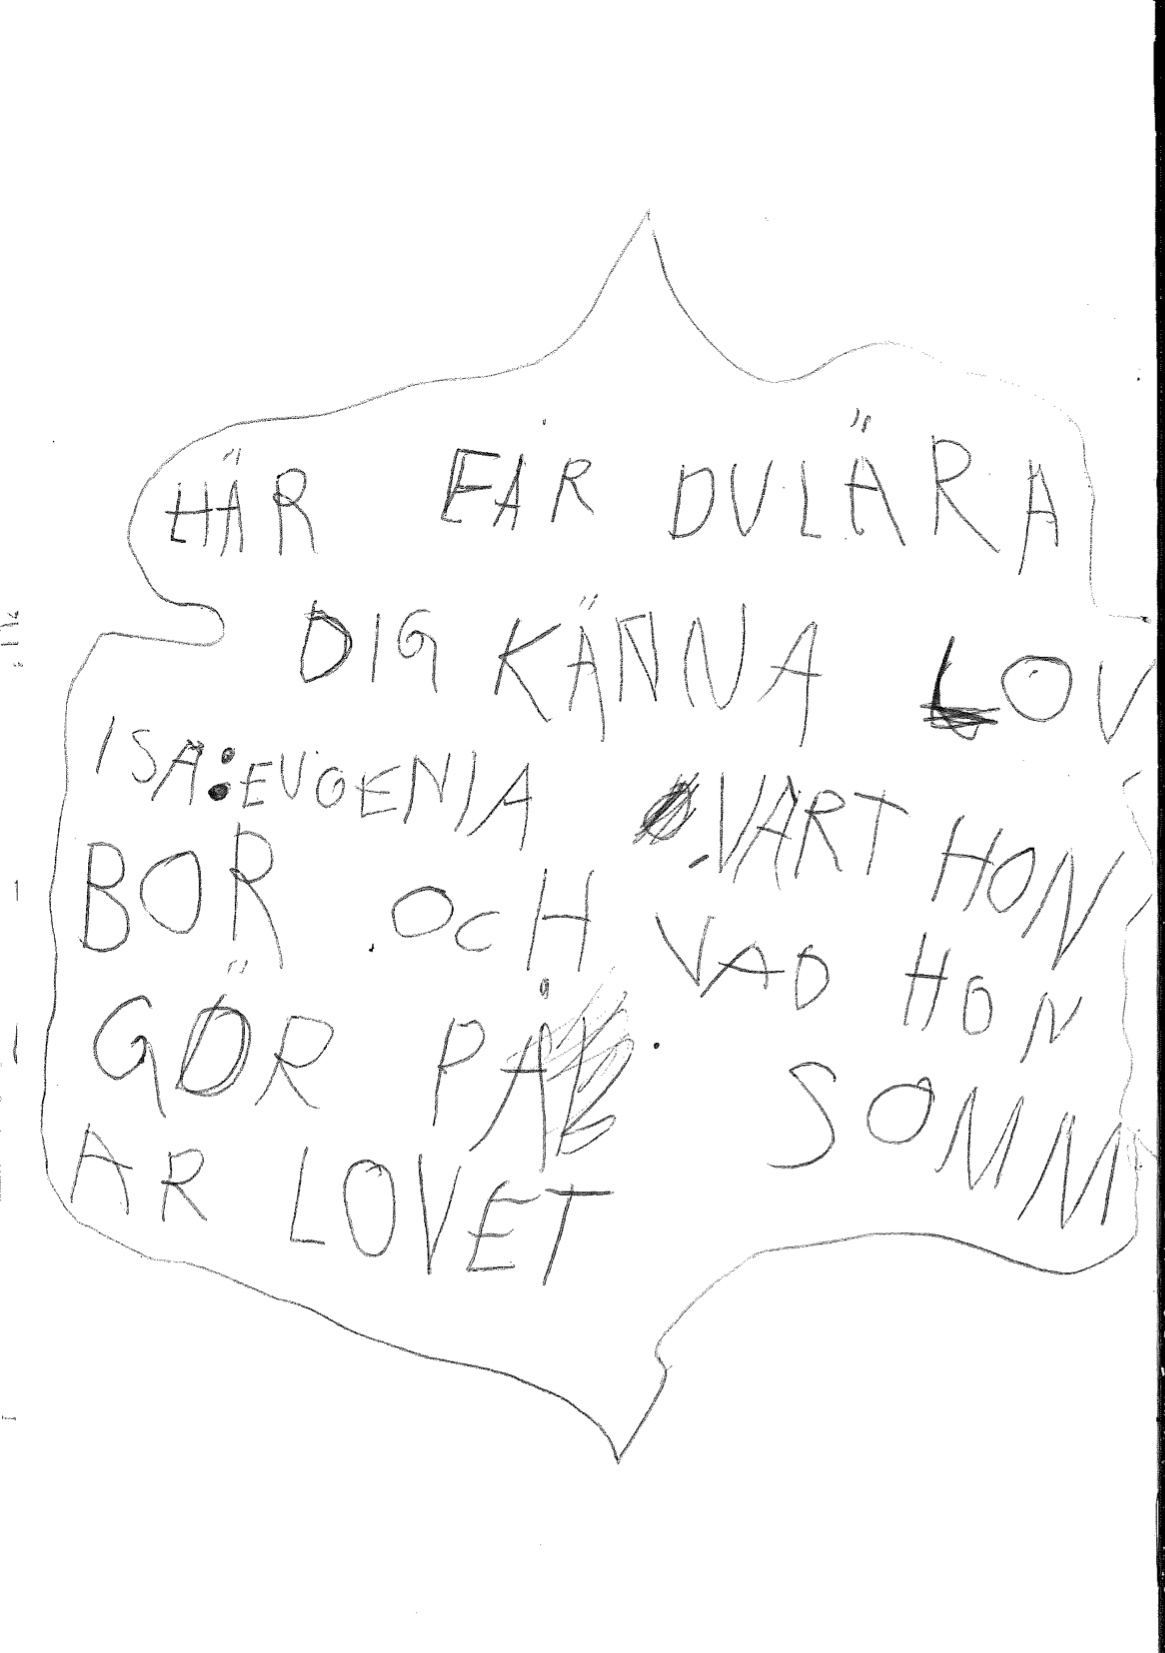 HÄR FÅR DU LÄRA
DIG KÄNNA LOV
ISA:EUGENIA VART HON
BOR OCH VAD HON
GÖR PÅ SOMM
AR LOVET